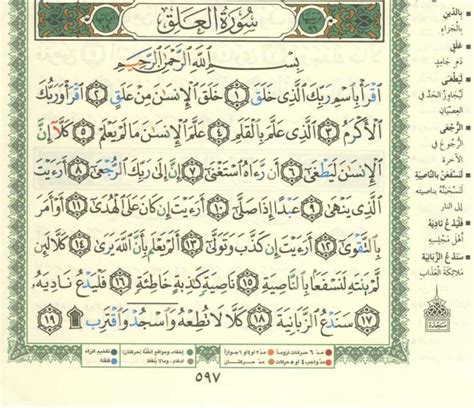 سُورَةُ العَلَق
بِسْمِ ٱللَّهِ ٱلرَّحْمَٰنِ ٱلرَّحِيمِ
ٱقْرَأْ بِٱسْمِ رَبِّكَ ٱلَّذِى خَلَقَ ۝١ خَلَقَ ٱلْإِنسَٰنَ مِنْ عَلَقٍ ۝٢ ٱقْرَأْ وَرَبُّكَ
ٱلْأَكْرَمُ ۝٣ ٱلَّذِى عَلَّمَ بِٱلْقَلَمِ ۝٤ عَلَّمَ ٱلْإِنسَٰنَ مَا لَمْ يَعْلَمْ ۝٥ كَلَّآ إِنَّ
ٱلْإِنسَٰنَ لَيَطْغَىٰٓ ۝٦ أَن رَّءَاهُ ٱسْتَغْنَىٰٓ ۝٧ إِنَّ إِلَىٰ رَبِّكَ ٱلرُّجْعَىٰٓ ۝٨ أَرَءَيْتَ
ٱلَّذِى يَنْهَىٰ ۝٩ عَبْدًا إِذَا صَلَّىٰٓ ۝١٠ أَرَءَيْتَ إِن كَانَ عَلَى ٱلْهُدَىٰٓ ۝١١ أَوْ أَمَرَ
بِٱلتَّقْوَىٰٓ ۝١٢ أَرَءَيْتَ إِن كَذَّبَ وَتَوَلَّىٰٓ ۝١٣ أَلَمْ يَعْلَم بِأَنَّ ٱللَّهَ يَرَىٰ ۝١٤ كَلَّا لَئِن
لَّمْ يَنتَهِ لَنَسْفَعًۢا بِٱلنَّاصِيَةِ ۝١٥ نَاصِيَةٍ كَٰذِبَةٍ خَاطِئَةٍ ۝١٦ فَلْيَدْعُ نَادِيَهُۥ
۝١٧ سَنَدْعُ ٱلزَّبَانِيَةَ ۝١٨ كَلَّا لَا تُطِعْهُ وَٱسْجُدْ وَٱقْتَرِب ۩ ۝١٩
بالدين
بالجزاء
علق
دم جامد
ليطغى
ليجاوز الحد في
العصيان
الرجعى
الرجوع في
الآخرة
لنسفعن بالناصية
لنسحبنه بناصيته
إلى النار
فليدع ناديه
أهل مجلسه
سندع الزبانية
ملائكة العذاب
سجدة
مد ٦ حركات لزوما
مد ٢ أو ٤ أو ٦ جوازا
إخفاء، ومواقع الغنة (حركتان)
تفخيم الراء
مد واجب ٤ أو ٥ حركات
مد حركتان
ادغام، وما لا يلفظ
قلقلة
٥٩٧